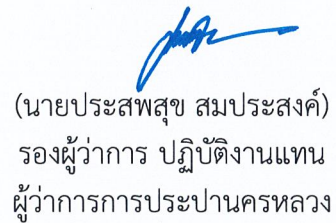 (นายประสพสุข สมประสงค์)
รองผู้ว่าการ ปฏิบัติงานแทน
ผู้ว่าการการประปานครหลวง